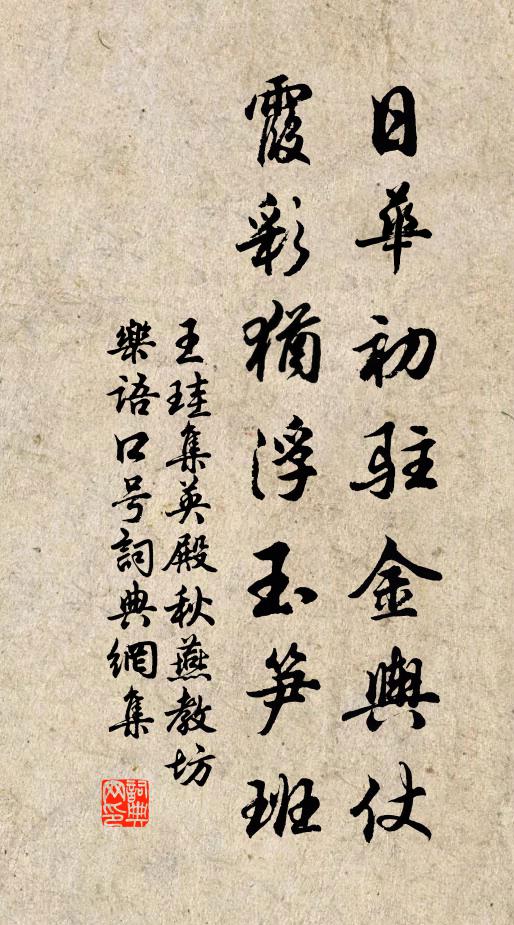 日華初駐金輿仗
霞彩猶浮玉笋班
王珪集英殿秋燕教坊
樂語口号詞典網集
詞典网印